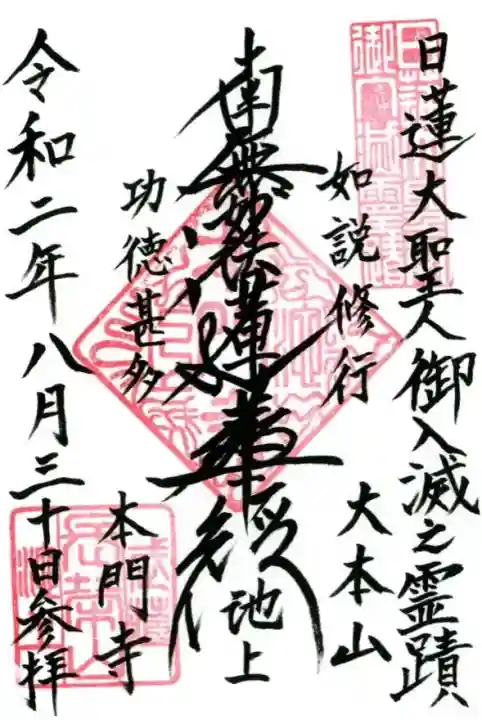 日蓮大聖人御入滅之霊蹟
如説修行
大本山
南無妙法蓮華経
池上
功徳甚多
本門寺
令和二年八月三十日参拝